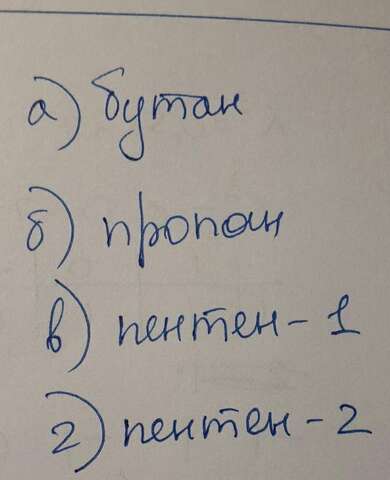 а) бутан
б) пропан
в) пентен-1
г) пентен-2